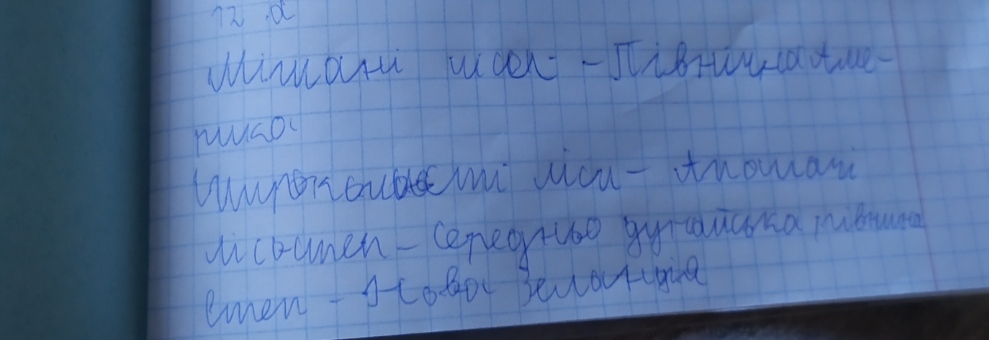 12 .а
Мішані ліси - Північна Аме-
рика
Широколисті ліси - Апалачі
лісостеп - Середньо дунайська рівнина
Степ - Нова Зеландія